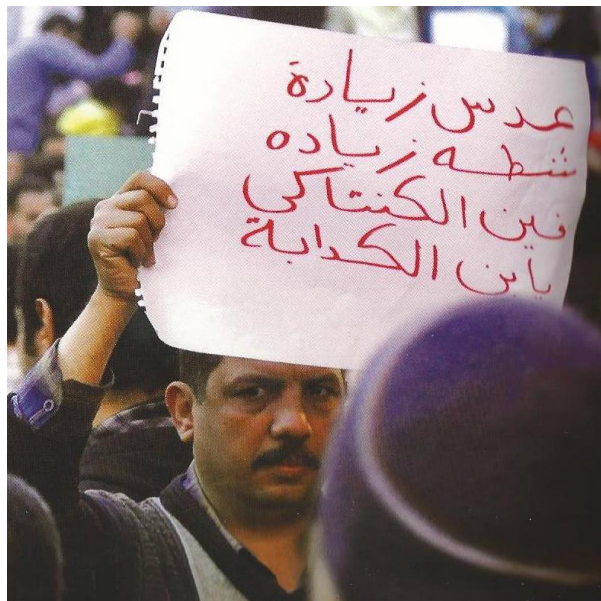 عدس زيادة
شطه زياده
فين الكنتاكي
يابن الكدابة